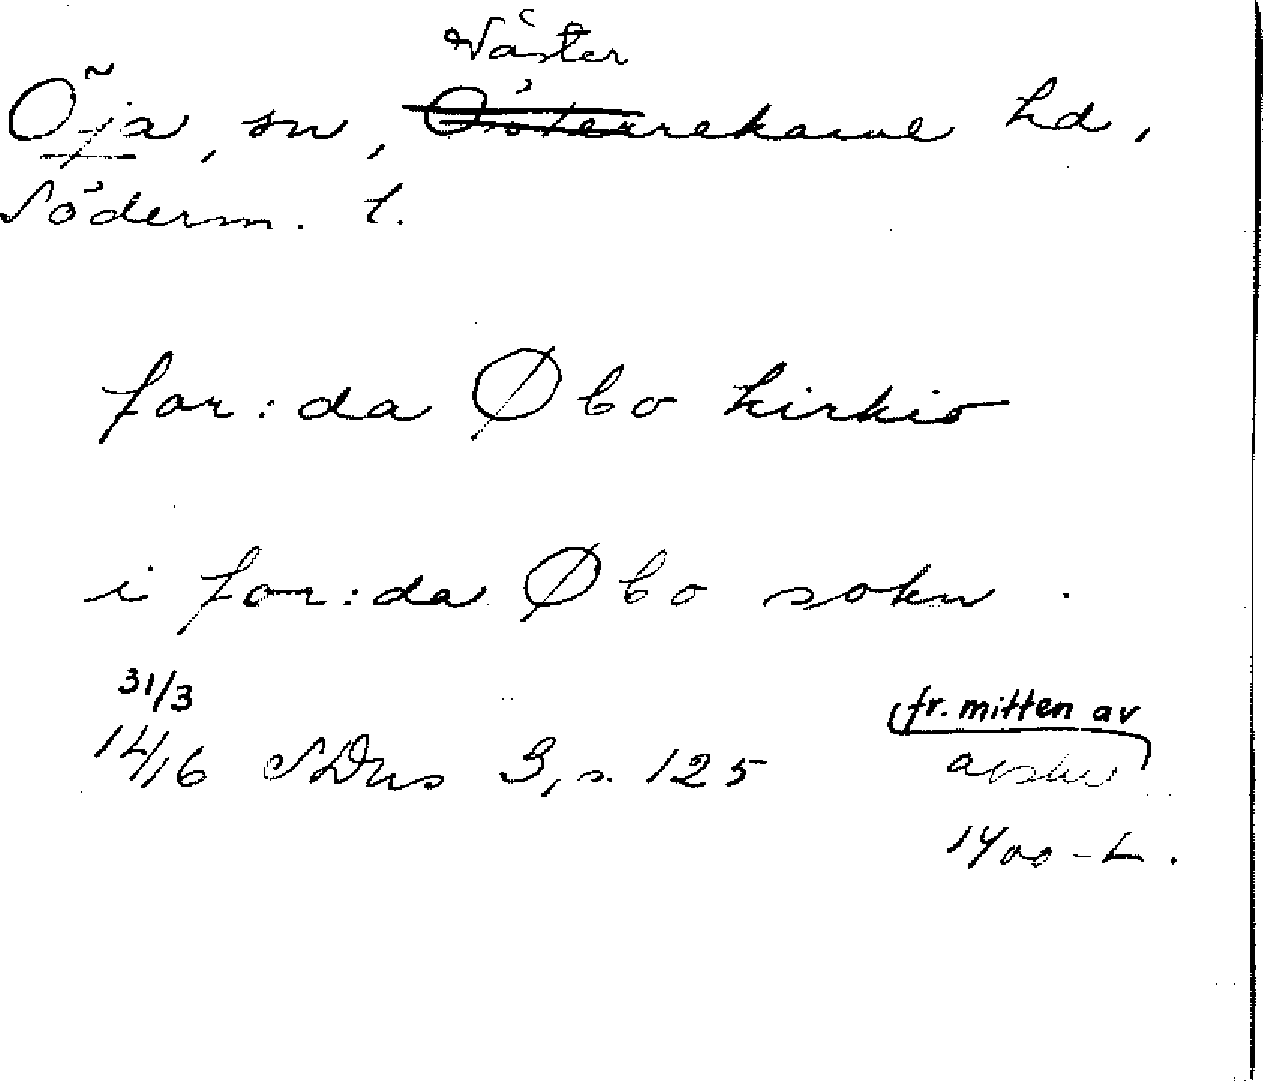 Väster
Öja, sn, Österrekarne hd,
Söderm. l.
for:da Øbo kirkio
i for:da Øbo sokn.
31/3
1416 SDns 3, s. 125
fr. mitten av
avskr
1400-t.